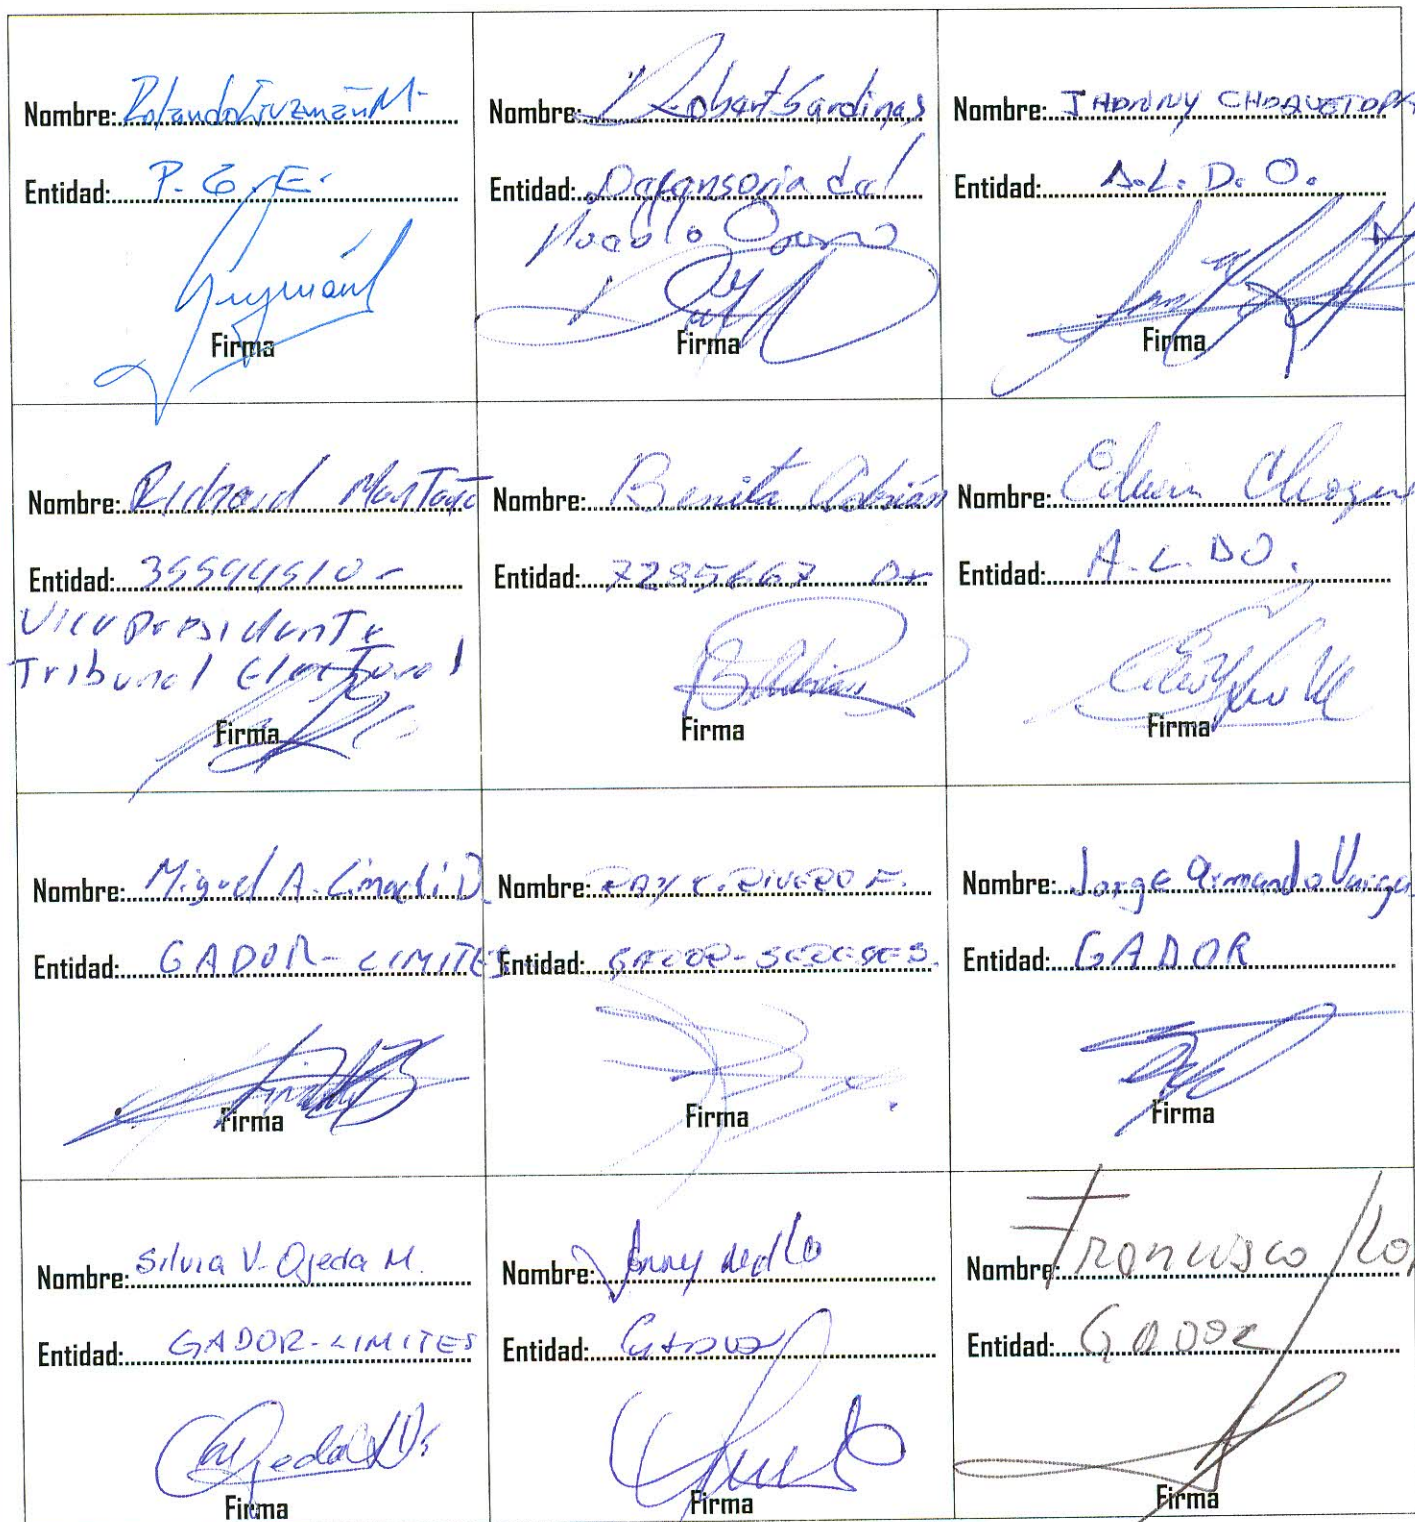 Nombre: Rolando Guzmán M.
Entidad: P.G.E.
Guzmán
Firma
Nombre: Robert Sardinas
Entidad: Defensoria del
Pueblo Oruro
Firma
Nombre: JHONNY CHOQUETOPA
Entidad: A.L.D.O.
Firma
Nombre: Richard Montaño
Entidad: 35594510-
Vicepresidente
Tribunal Electoral
Firma
Nombre: Benita Adrián
Entidad: 7285667 Or
BAdrian
Firma
Nombre: Edwin Choque
Entidad: A.L.DO.
Firma
Nombre: Miguel A. Limachi D.
Entidad: GADOR-LIMITES
Firma
Nombre: RAY C. RIVERO F.
Entidad: GADOR-SEDEGES.
Firma
Nombre: Jorge Armando Vargas
Entidad: GADOR
Firma
Nombre: Silvia V. Ojeda M.
Entidad: GADOR-LIMITES
Ojeda
Firma
Nombre: Jenny
Entidad: GADOR
Firma
Nombre: Francisco
Entidad: GADOR
Firma